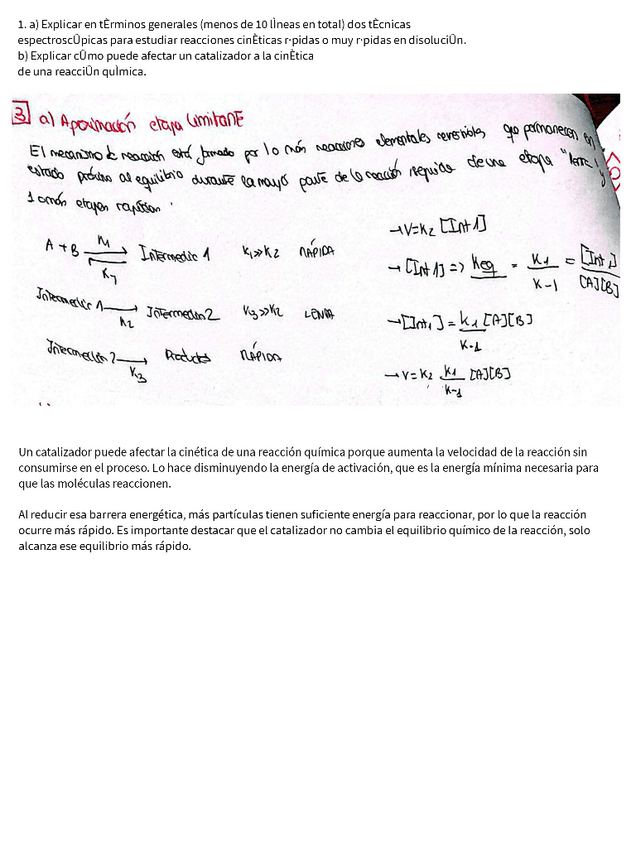 1. a) Explicar en tÈrminos generales (menos de 10 lÌneas en total) dos tÈcnicas
espectroscÛpicas para estudiar reacciones cinÈticas r·pidas o muy r·pidas en disoluciÛn.
b) Explicar cÛmo puede afectar un catalizador a la cinÈtica
de una reacciÛn quÌmica.
3 a) Aproximación etapa limitante
El mecanismo de reacción está formado por 1 o más reacciones elementales reversibles que permanecen en
estado próximo al equilibrio durante la mayor parte de la reacción seguida de una etapa "lenta" y
1 o más etapas rápidas.
A + B K1 K-1 Intermedio 1 K1>>K2 RÁPIDA
Intermedio 1 → K2 Intermedio 2 K3>>K2 LENTA
Intermedio 2 → K3 Productos RÁPIDA
→ V=K2 [Int 1]
→ [Int 1] => Keq = K1/K-1 = [Int1]/[A][B]
→ [Int1] = K1/K-1 [A][B]
→ V = K2 K1/K-1 [A][B]
Un catalizador puede afectar la cinética de una reacción química porque aumenta la velocidad de la reacción sin
consumirse en el proceso. Lo hace disminuyendo la energía de activación, que es la energía mínima necesaria para
que las moléculas reaccionen.
Al reducir esa barrera energética, más partículas tienen suficiente energía para reaccionar, por lo que la reacción
ocurre más rápido. Es importante destacar que el catalizador no cambia el equilibrio químico de la reacción, solo
alcanza ese equilibrio más rápido.